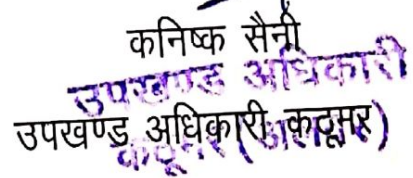 कनिष्क सैनी
उपखण्ड अधिकारी
उपखण्ड अधिकारी कठूमर
कठूमर (अलवर)